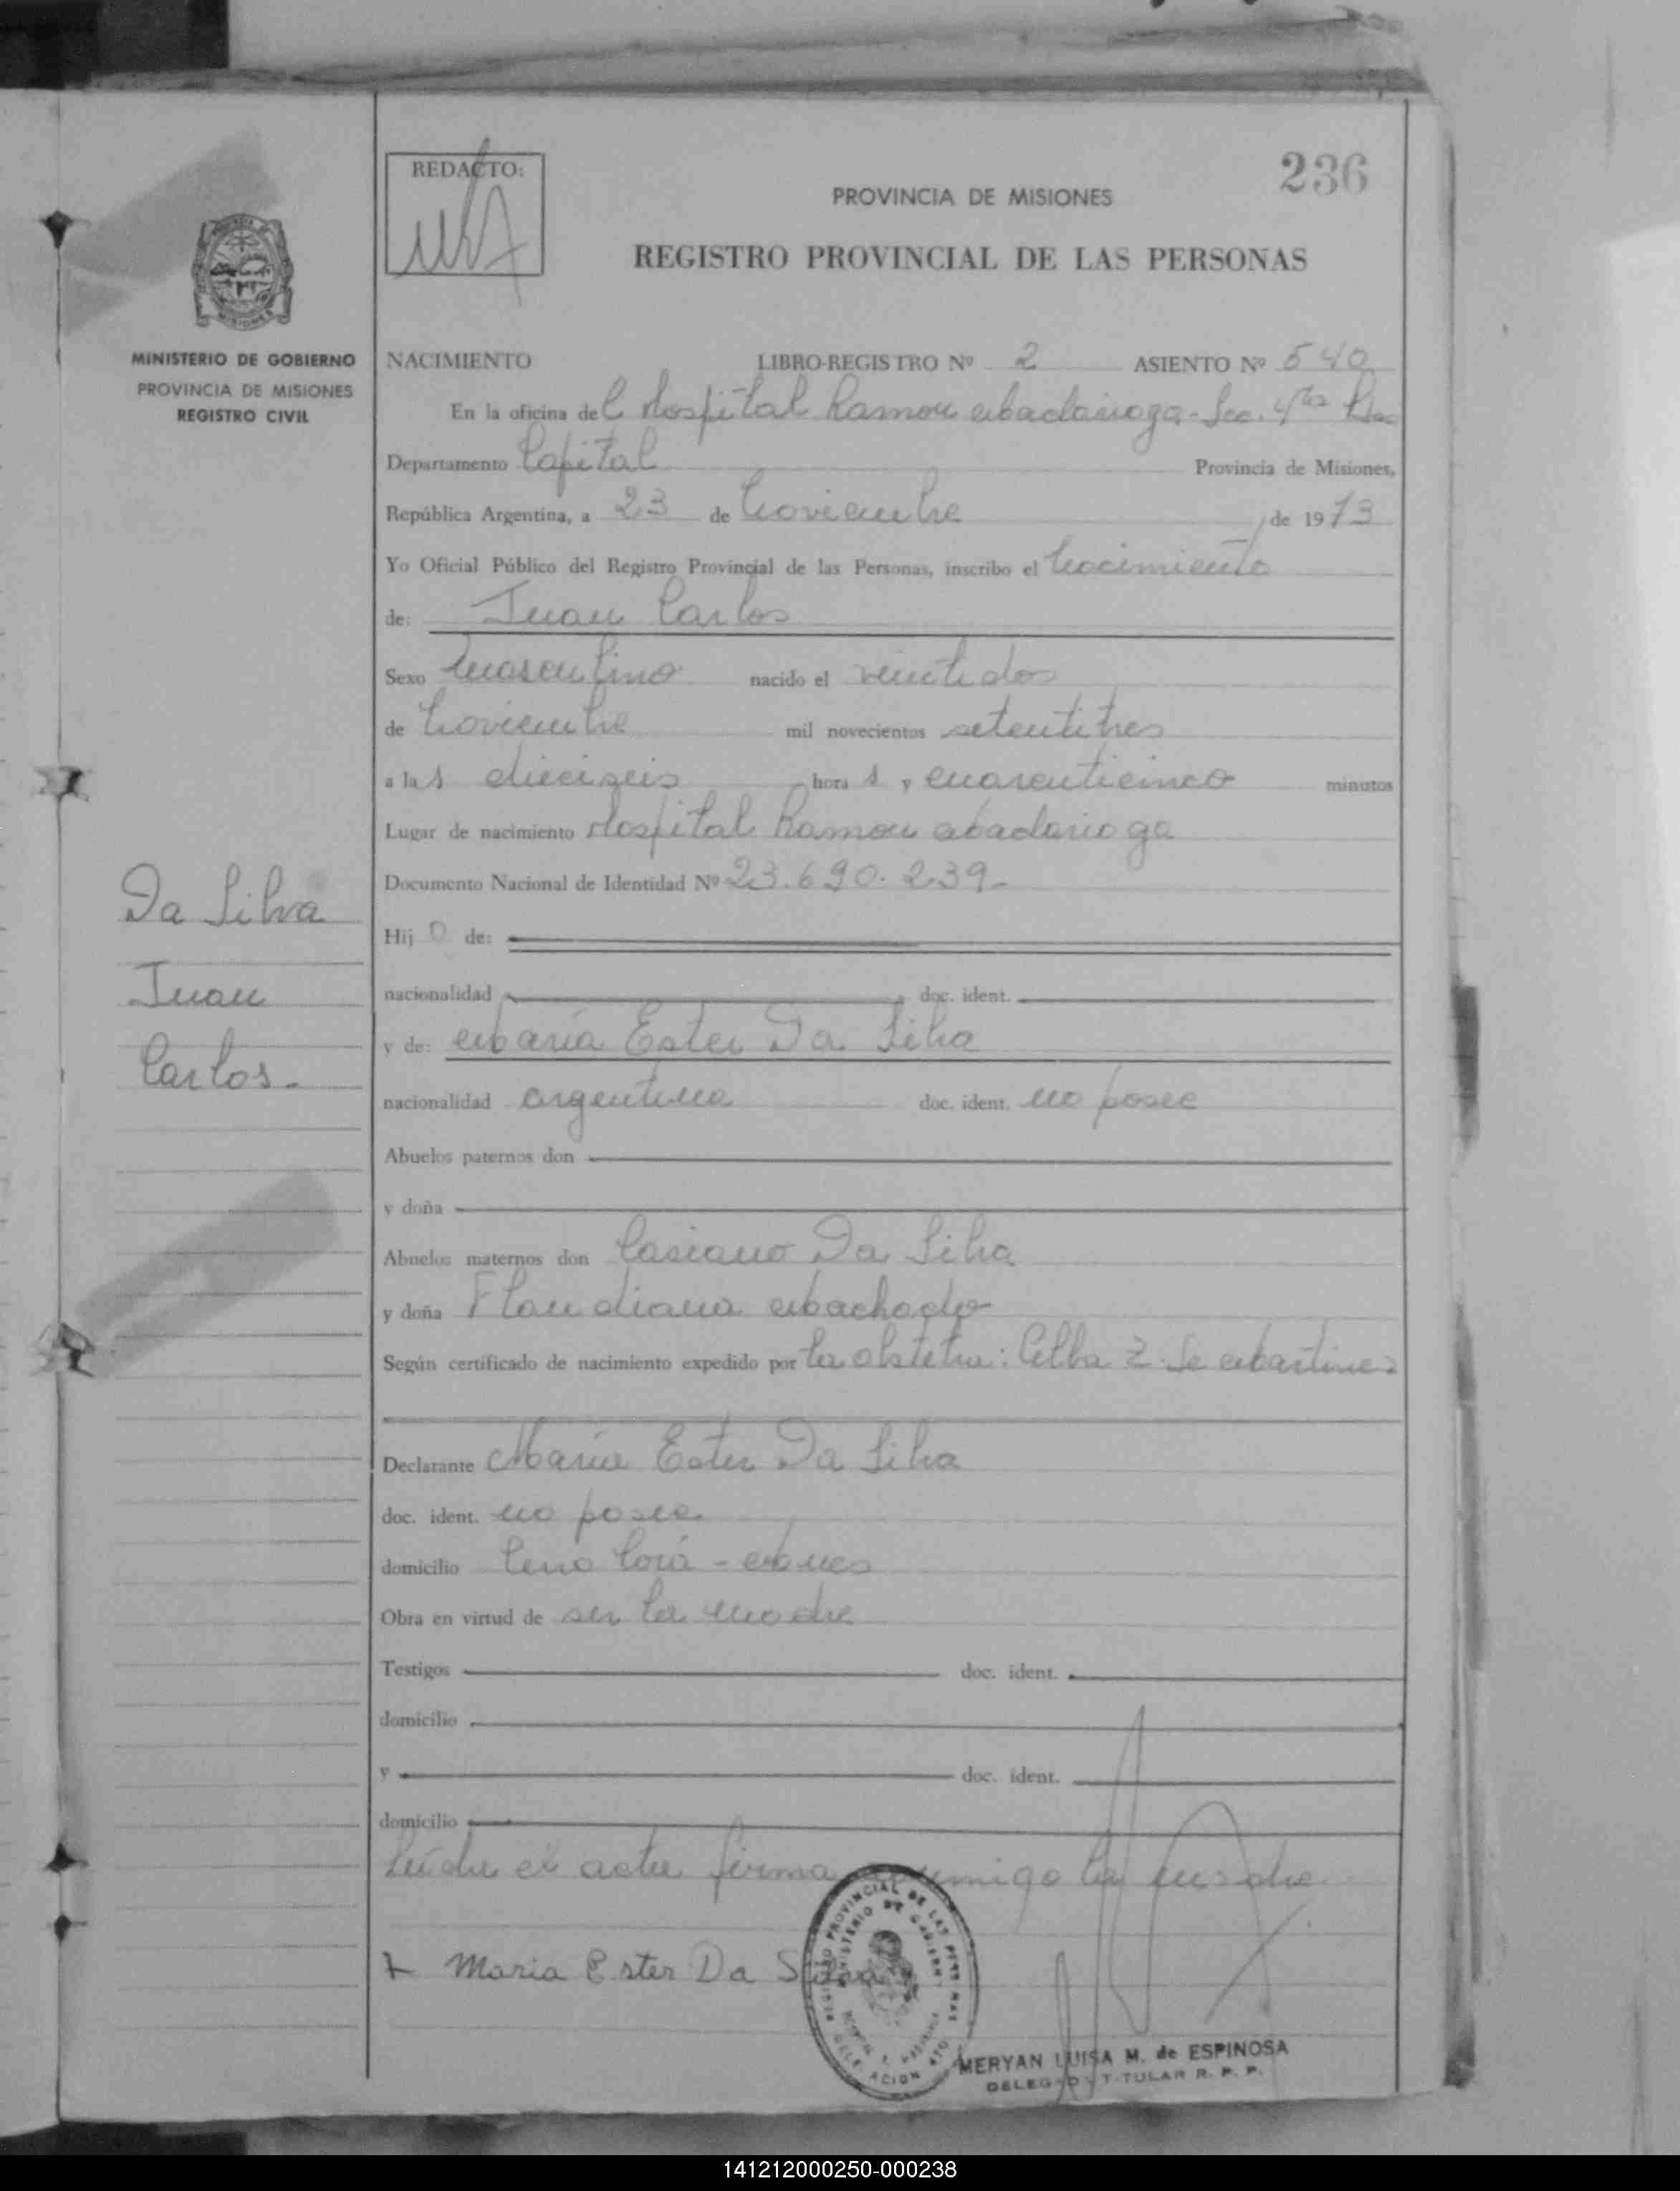 REDACTO:
236
PROVINCIA DE MISIONES
REGISTRO PROVINCIAL DE LAS PERSONAS
MINISTERIO DE GOBIERNO
PROVINCIA DE MISIONES
REGISTRO CIVIL
NACIMIENTO LIBRO-REGISTRO Nº 2 ASIENTO Nº 540
En la oficina del Hospital Ramon Madariaga - Sec. 4ta
Departamento Capital Provincia de Misiones,
República Argentina, a 23 de Noviembre de 1973
Yo Oficial Público del Registro Provincial de las Personas, inscribo el Nacimiento
de: Juan Carlos
Sexo Masculino nacido el veintidos
de Noviembre mil novecientos setentitres
a las dieciseis horas y cuarenticinco minutos
Lugar de nacimiento Hospital Ramon Madariaga
Documento Nacional de Identidad Nº 23.690.239-
Hijo de:
nacionalidad doc. ident.
y de: María Ester Da Silva
nacionalidad argentina doc. ident. no posee
Abuelos paternos don
y doña
Abuelos maternos don Casiano Da Silva
y doña Flaudiana Machado
Según certificado de nacimiento expedido por la obstetra: Celba Z. de Martinez
Declarante María Ester Da Silva
doc. ident. no posee
domicilio Cerro Corá - Mnes
Obra en virtud de ser la madre
Testigos doc. ident.
domicilio
y doc. ident.
domicilio
Leída el acta firma conmigo la madre.
Maria Ester Da Silva
Da Silva
Juan
Carlos.-
REGISTRO PROVINCIAL DE LAS PERSONAS
MINISTERIO DE GOBIERNO
DELEGACION
MERYAN LUISA M. de ESPINOSA
DELEGADO TITULAR R. P. P.
141212000250-000238